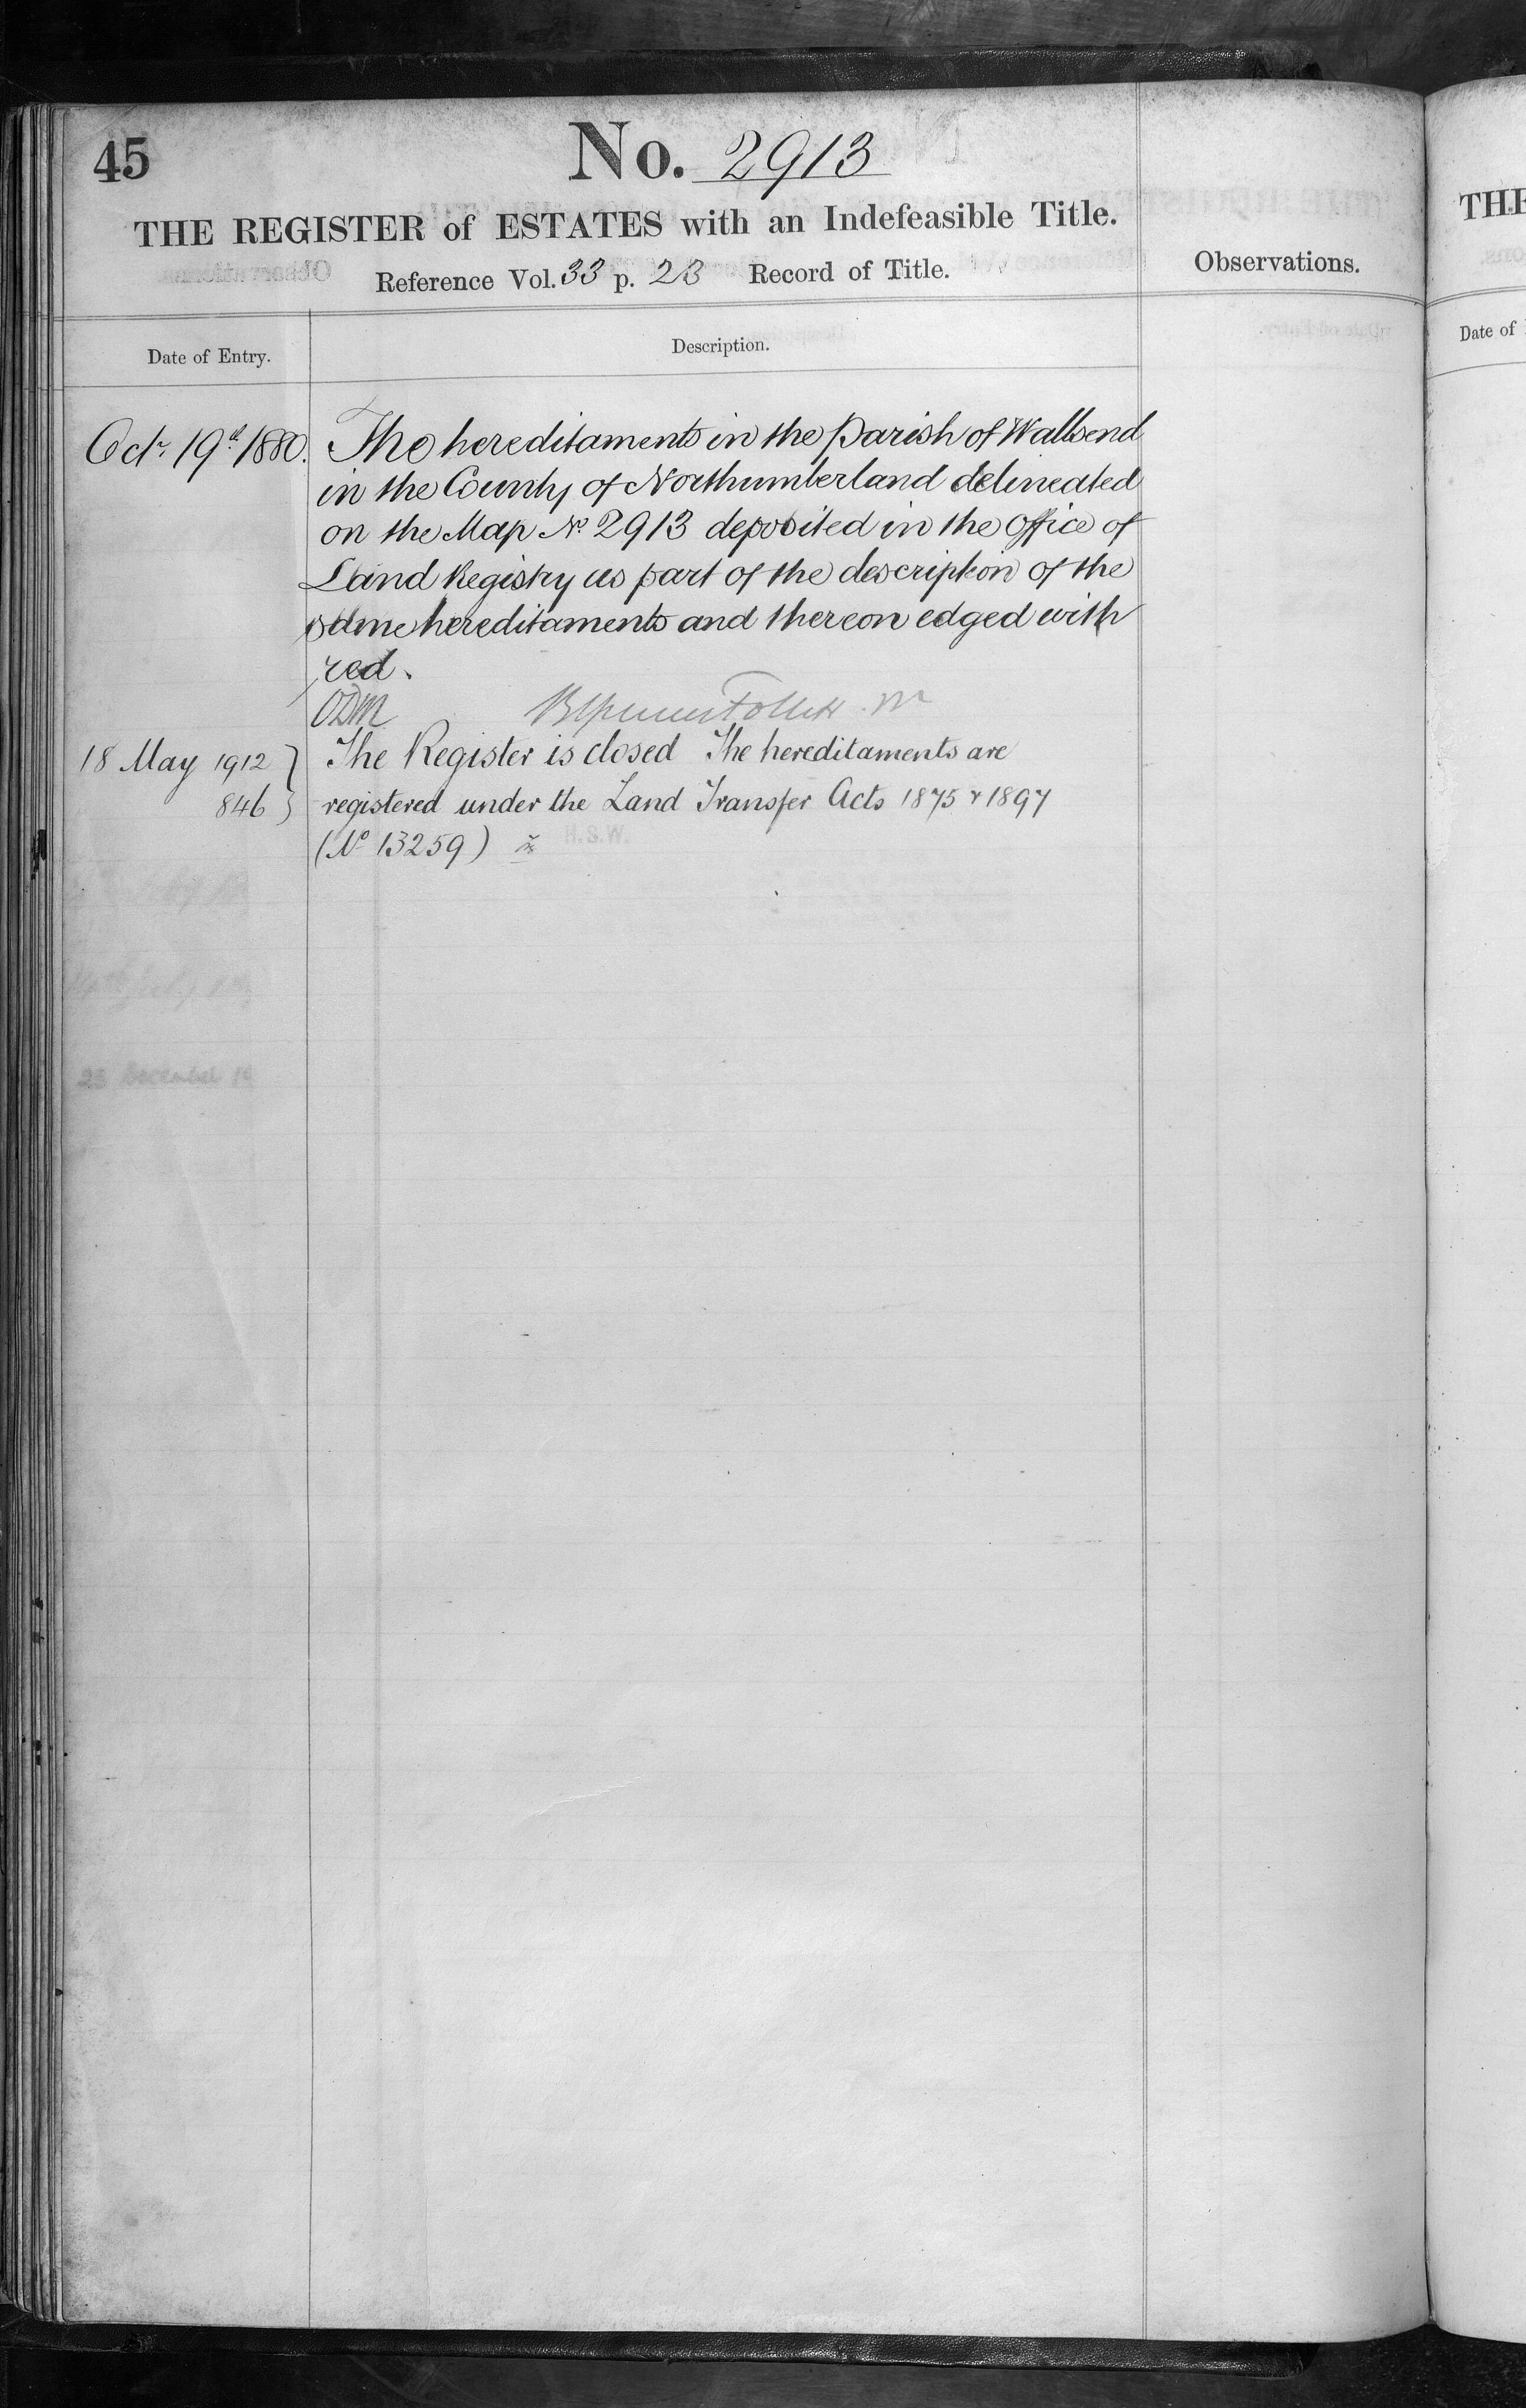 45
No. 2913
THE REGISTER of ESTATES with an Indefeasible Title.
Reference Vol. 33 p. 23 Record of Title.
Observations.
Date of Entry.
Description.
Octr 19th 1880.
The hereditaments in the Parish of Wallsend
in the County of Northumberland delineated
on the Map No 2913 deposited in the office of
Land Registry as part of the description of the
same hereditaments and thereon edged with
red.
ODM
18 May 1912
846
The Register is closed The hereditaments are
registered under the Land Transfer Acts 1875 & 1897
(No 13259)
H.S.W.
THE
Date of